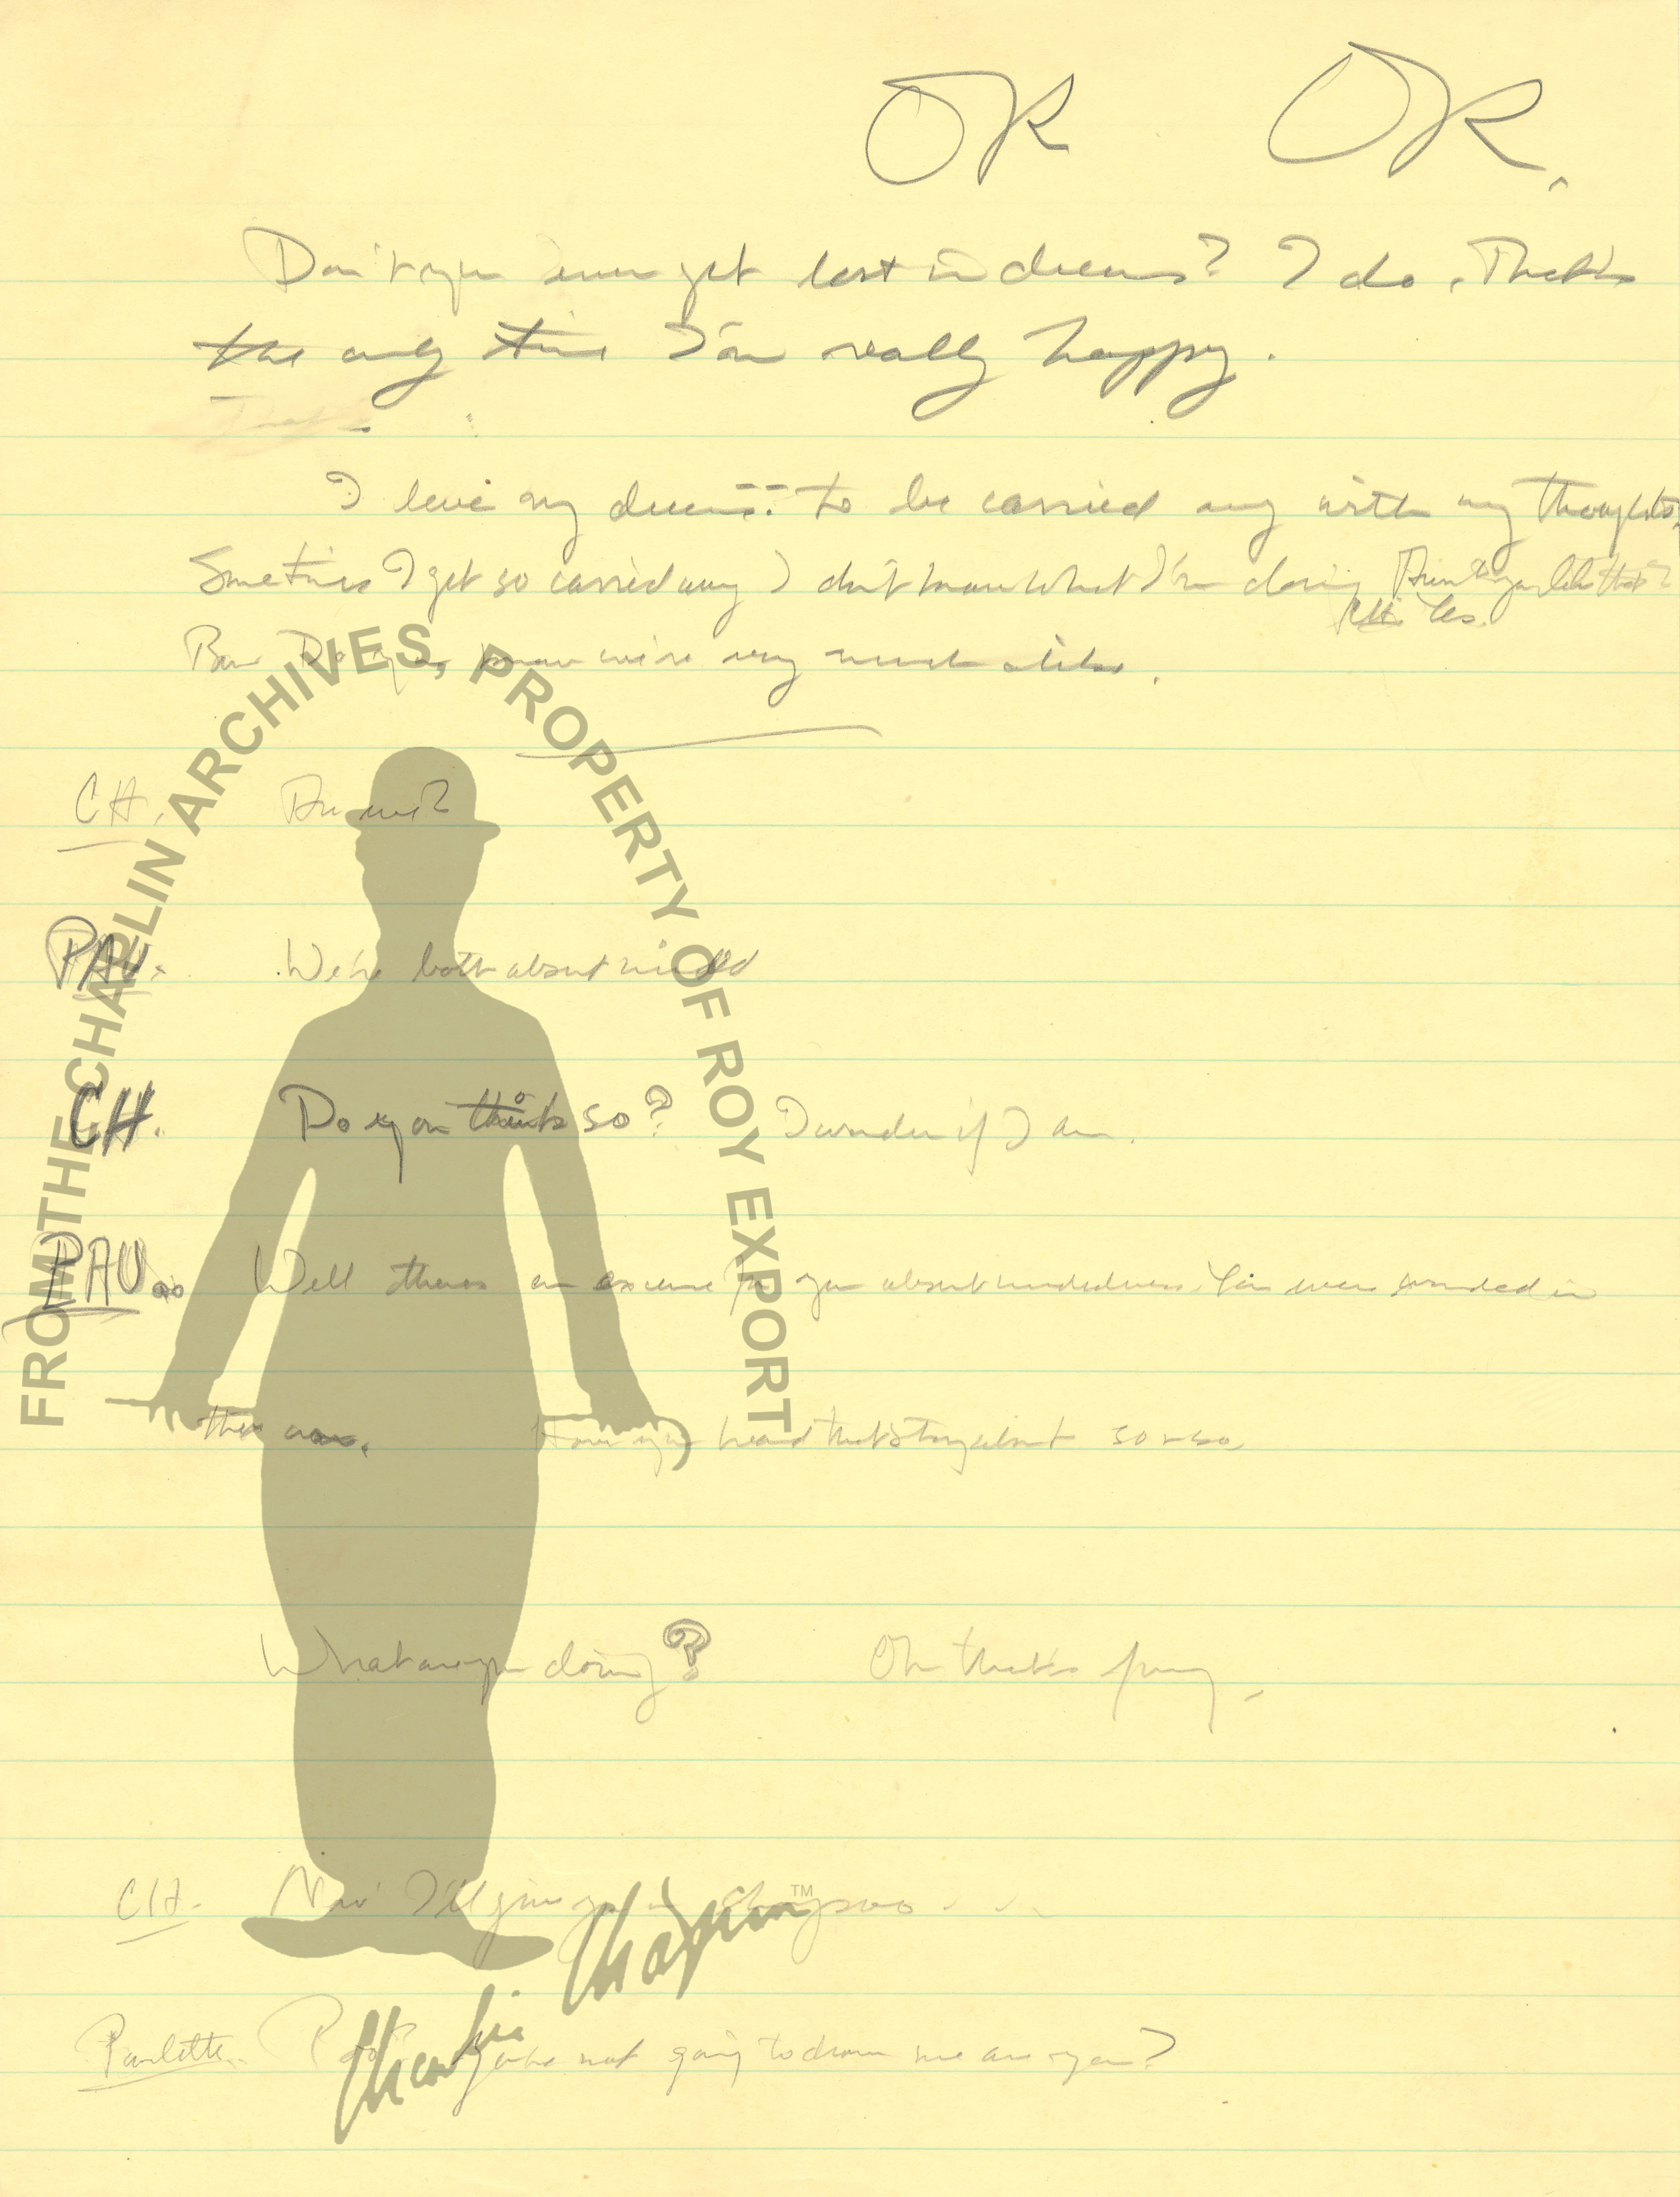 OK OK.
Don't you ever get lost in dreams? I do. That's
the only time I'm really happy.
That
I love my dreams to be carried away with my thoughts.
Sometimes I get so carried away I don't know what I'm doing Aren't you like that?
CH Yes.
know we're very much alike.
CH. Are we?
PAU. We're both absent minded
CH. Do you think so? I wonder if I am.
PAU. Well there's an excuse for your absentmindedness. You were wounded in
the war. Have you heard that story about so & so
What are you doing? Oh that's funny.
CH. Now I'll give you a shampoo
Paulette. you're not going to drown me are you?
FROM THE CHAPLIN ARCHIVES, PROPERTY OF ROY EXPORT
Charlie Chaplin™